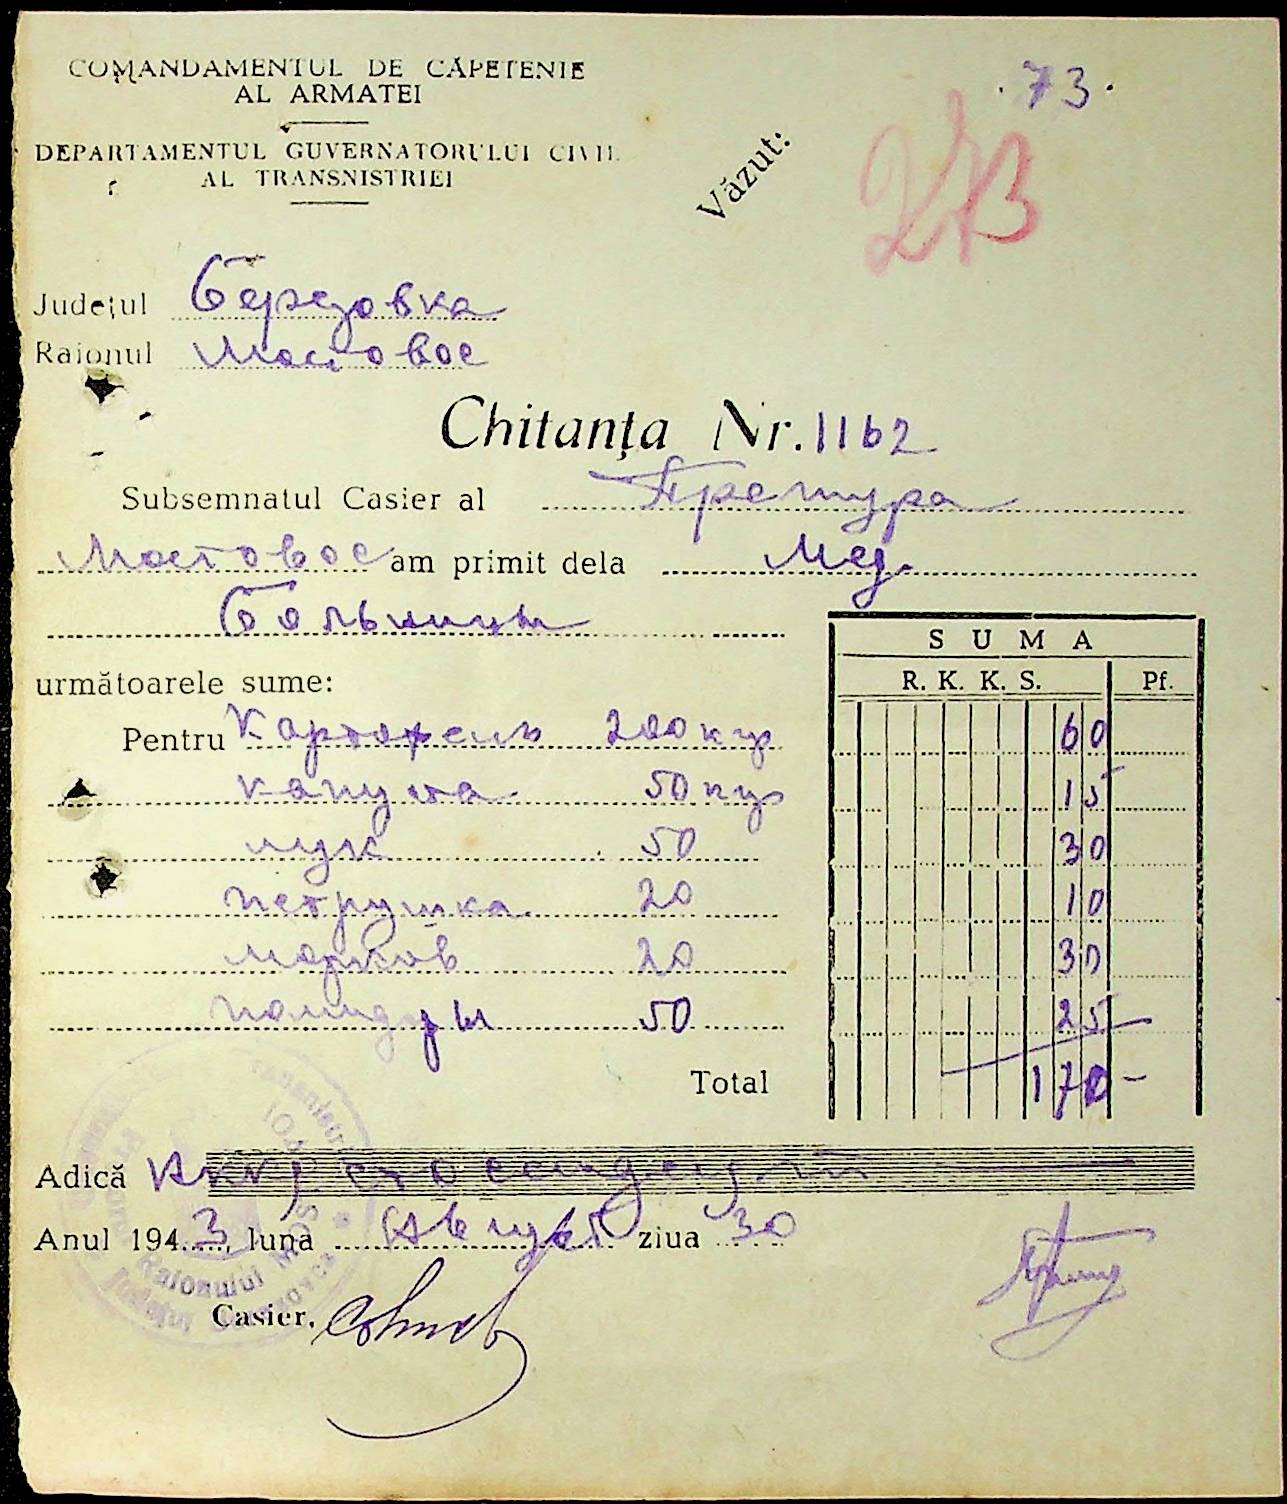 COMANDAMENTUL DE CĂPETENIE
AL ARMATEI
DEPARTAMENTUL GUVERNATORULUI CIVIL
AL TRANSNISTRIEI
73.
273
Văzut:
Județul Березовка
Raionul Мостовое
Chitanța Nr. 1162
Subsemnatul Casier al Претура
Мостовое am primit dela Мед.
Больницы
următoarele sume:
SUMA
R. K. K. S. Pf.
Pentru Картофель 200 кгр 60
капуста 50 кгр 15
лук 50 30
петрушка 20 10
морков 20 30
помидоры 50 25
Total 170 –
Adică сто семдесят
Anul 1943 luna ziua 30
Raionului
Județul
Casier,